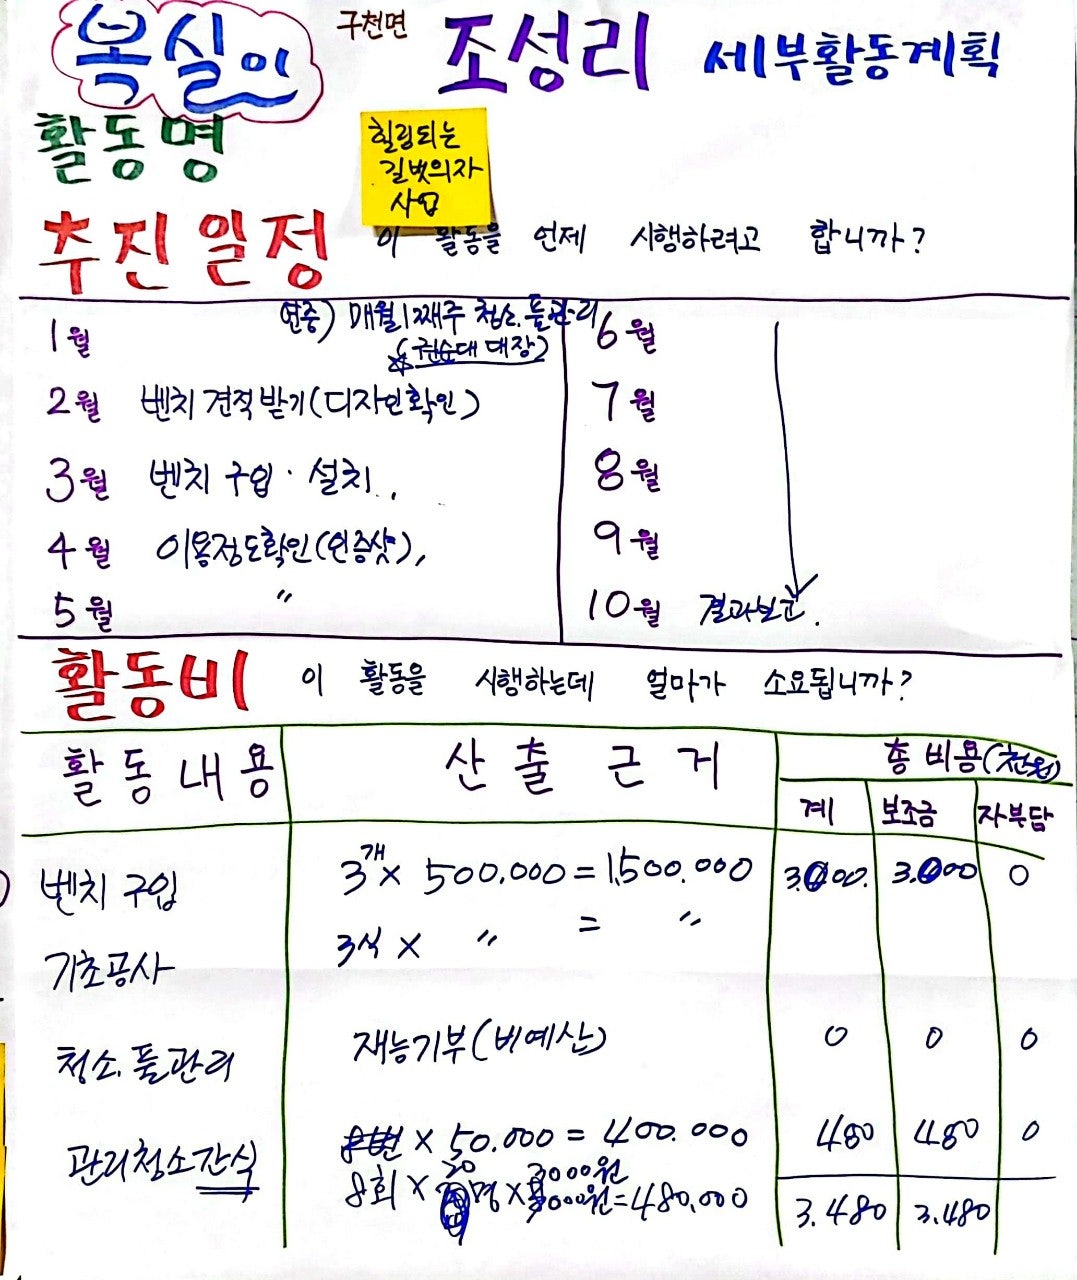 복실이 구천면 조성리 세부활동계획
활동명
힐링되는
길벗의자
사업
추진일정 이 활동을 언제 시행하려고 합니까?
연중) 매월 1째주 청소.풀관리
(권순대 대장)
1월
2월 벤치 견적받기(디자인확인)
3월 벤치 구입·설치.
4월 이용정도확인(인증샷),
5월 〃
6월
7월
8월
9월
10월 결과보고.
활동비 이 활동을 시행하는데 얼마가 소요됩니까?
활동내용 산출근거 총 비용(천원)
계 보조금 자부담
벤치 구입 3개 × 500.000 = 1,500.000 3.000. 3.000 0
기초공사 3식 × 〃 = 〃
청소.풀관리 재능기부(비예산) 0 0 0
관리청소간식 8번 × 50.000 = 400.000 480 480 0
8회 × 20명 × 3000원 = 480,000
3.480 3.480